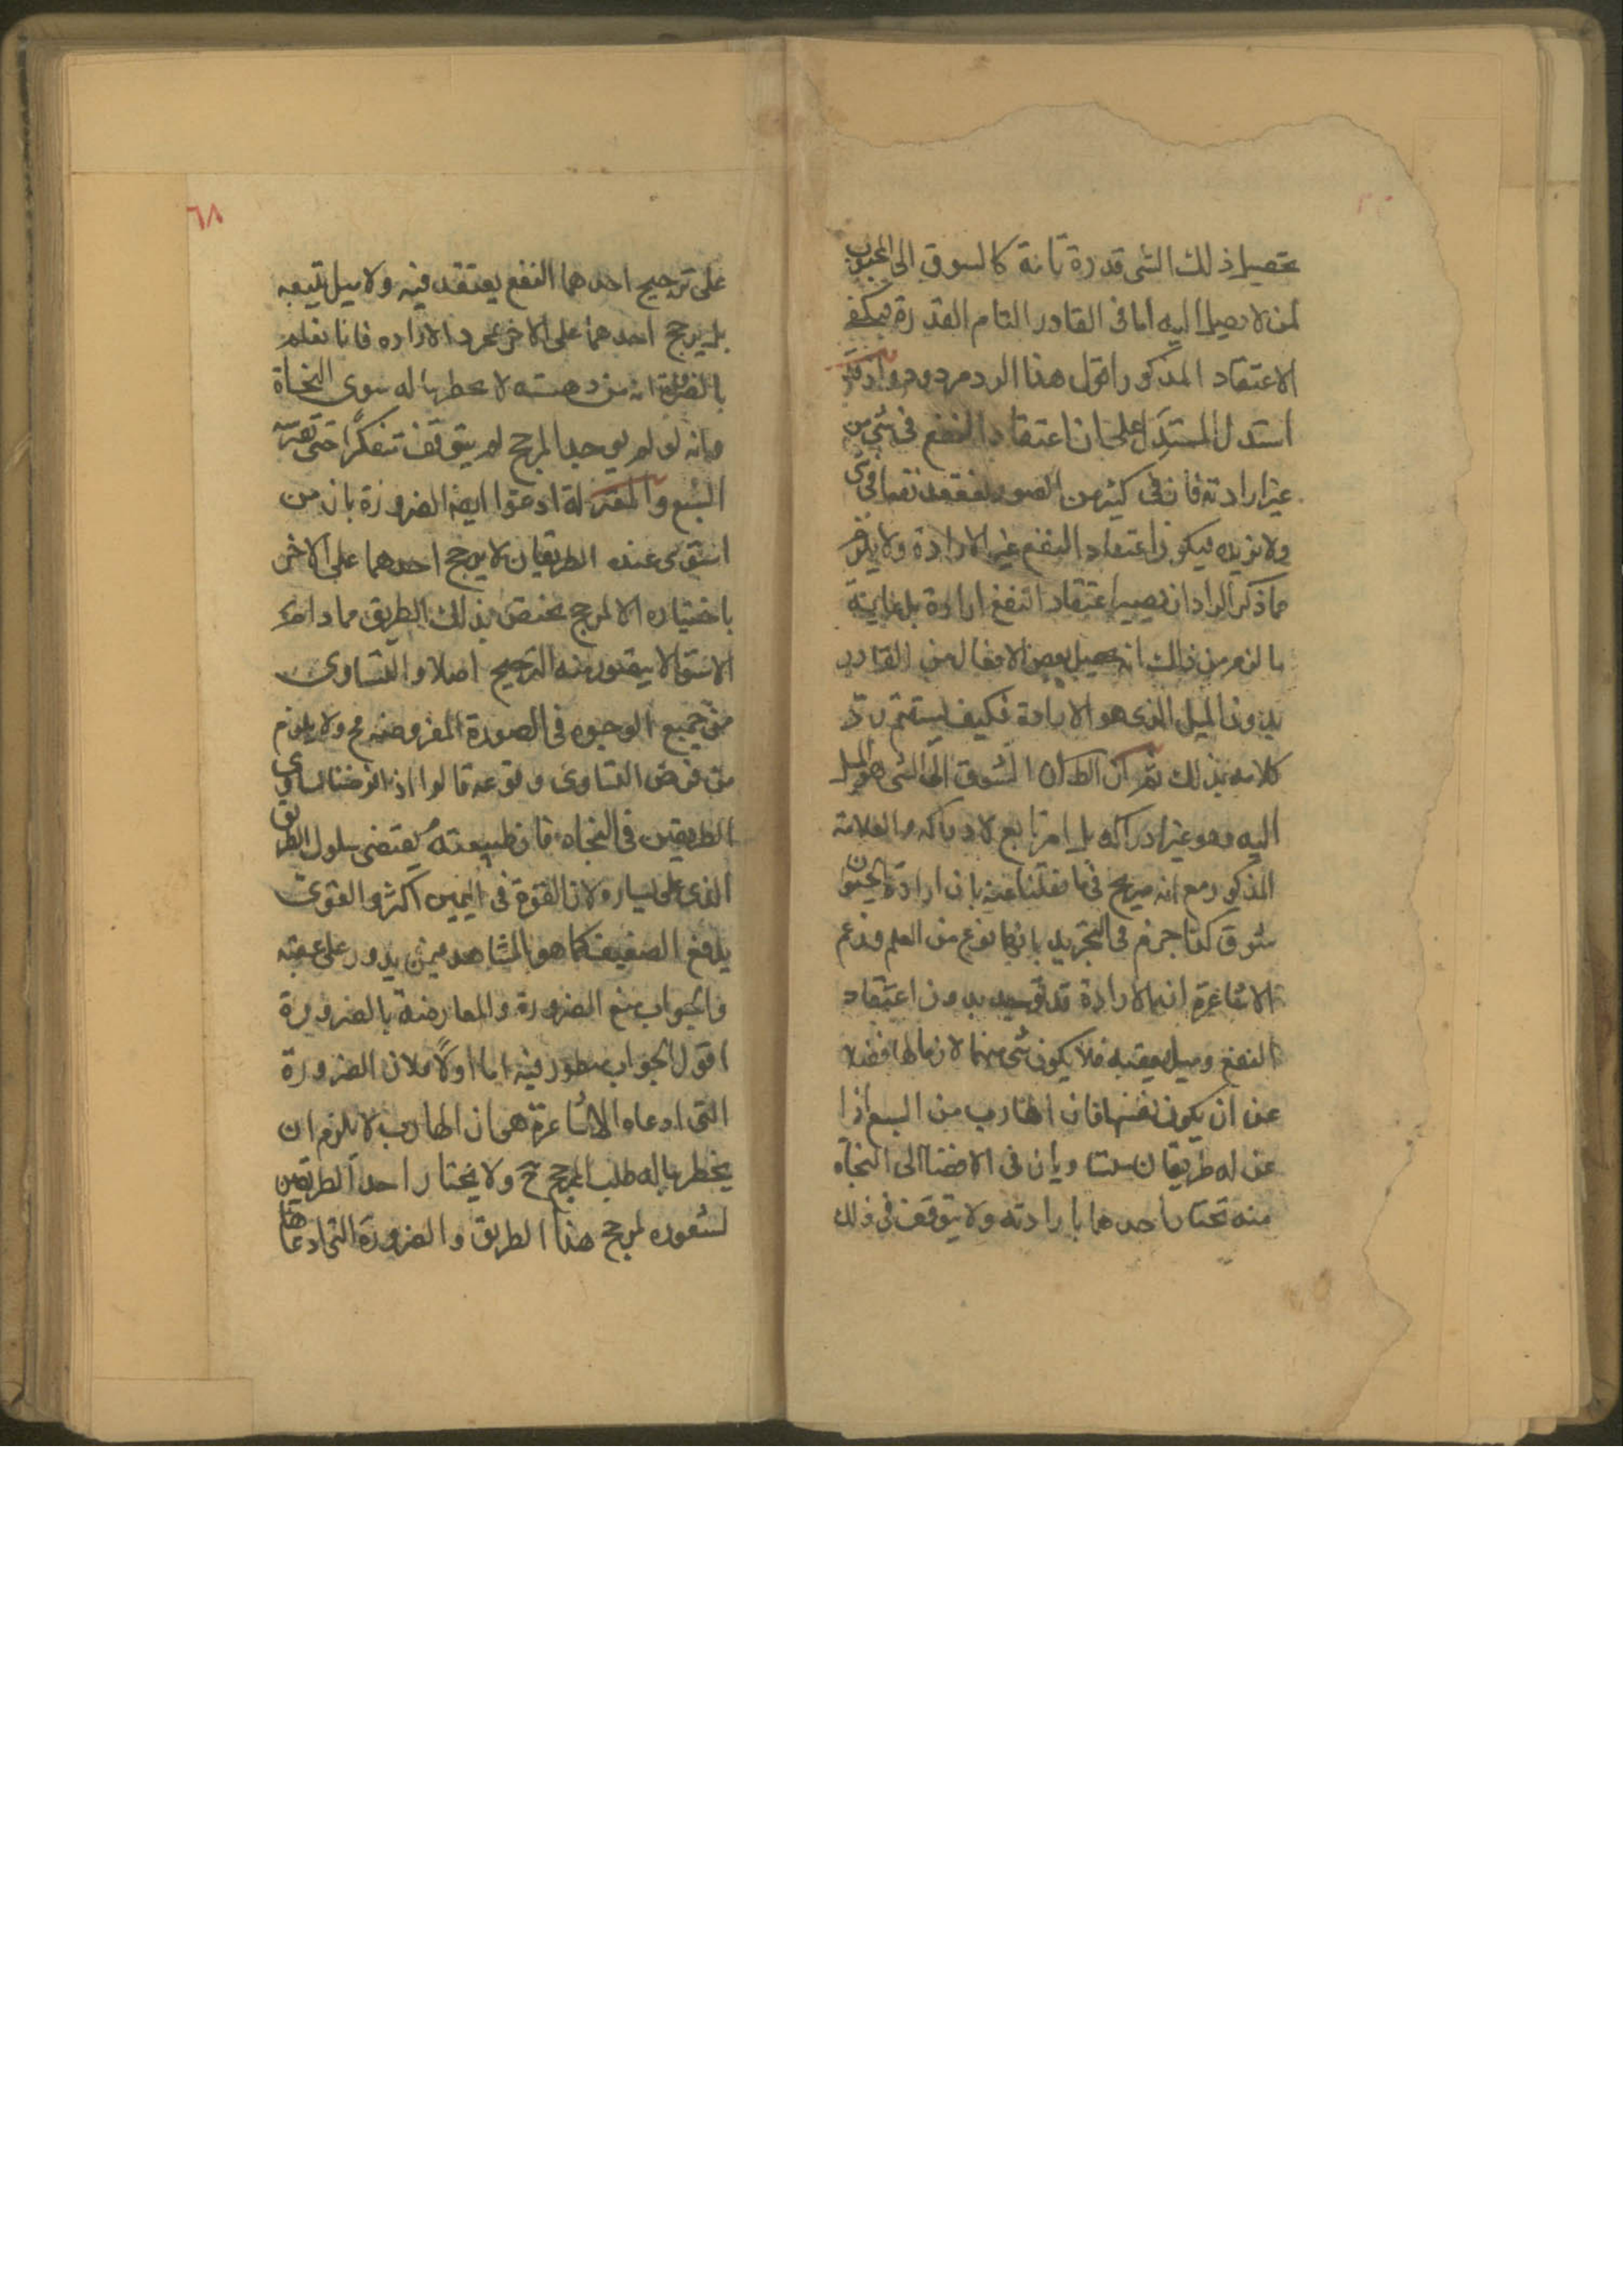 تحصيل ذلك الشى قدرة تامة كالسوق الى المحبوب
لمن لا يصل اليه اما فى القادر التام القدرة فيكفى
الاعتقاد المذكور اقول هذا الرد مردود
استدل المستدل على ان اعتقاد النفع فى شىء من
غير ارادته فان فى كثير من الصور نعتقد نفعا فى شى
ولا نريده فيكون اعتقاد النفع غير الارادة ولا يلزم
مما ذكر الراد ان يصير اعتقاد النفع ارادة بل غاية
ما لزم من ذلك انه يحصل بعض الافعال من القادر
بدون الميل الذى هو الارادة فكيف يستتم رد
كلامه بذلك ثم ان الظ ان الشوق الى الشى هو الميل
اليه وهو غير ادراكه بل امر تابع لادراكه والعلامة
المذكور مع انه صرح فى ما نقلنا عنه بان ارادة الحيوان
شوق كذا جزم فى التجريد بانها نوع من العلم وزعم
الاشاعرة ان الارادة قد توجد بدون اعتقاد
النفع وميل يعقبه فلا يكون شى منهما لازما لها فضلا
عن ان يكون نفسها فان الهارب من السبع اذا
عن له طريقان متساويان فى الافضا الى النجاة
منه يختار احدهما بارادته ولا يتوقف فى ذلك
٦٨
على ترجيح احدهما النفع يعتقد فيه ولا ميل يتبعه
بل يرجح احدهما على الاخر بمجرد الاراده فانا نعلم
بالضرورة انه من دهشته لا يخطر بباله سوى النجاة
وانه لو لم يوجد المرجح لم يتوقف تفكرا حتى يفترسه
السبع والمعتزلة ادعوا ايضا الضرورة بان من
استوى عنده الطريقان لا يرجح احدهما على الاخر
باختياره الا لمرجح يختص بذلك الطريق ومادام
الاستوا لا يتصور منه الترجيح اصلا والتساوى
من جميع الوجوه فى الصورة المفروضه مح ولا يلزم
من فرض التساوى وقوعه قالوا اذا فرضنا تساوى
الطريقين فى النجاة فان طبيعته يقتضى سلوك الطريق
الذى على يساره لان القوة فى اليمين اكثر والقوى
يدفع الضعيف كما هو المشاهد فيمن يدور على عقبه
والجواب منع الضرورة والمعارضة بالضرورة
اقول الجواب منظور فيه اما اولا فلان الضرورة
التى ادعاه الاشاعرة هى ان الهارب لا يلزم ان
يخطر بباله طلب المرجح ح ولا يختار احد الطريقين
لشعوره لمرجح هذا الطريق والضرورة التى ادعاها